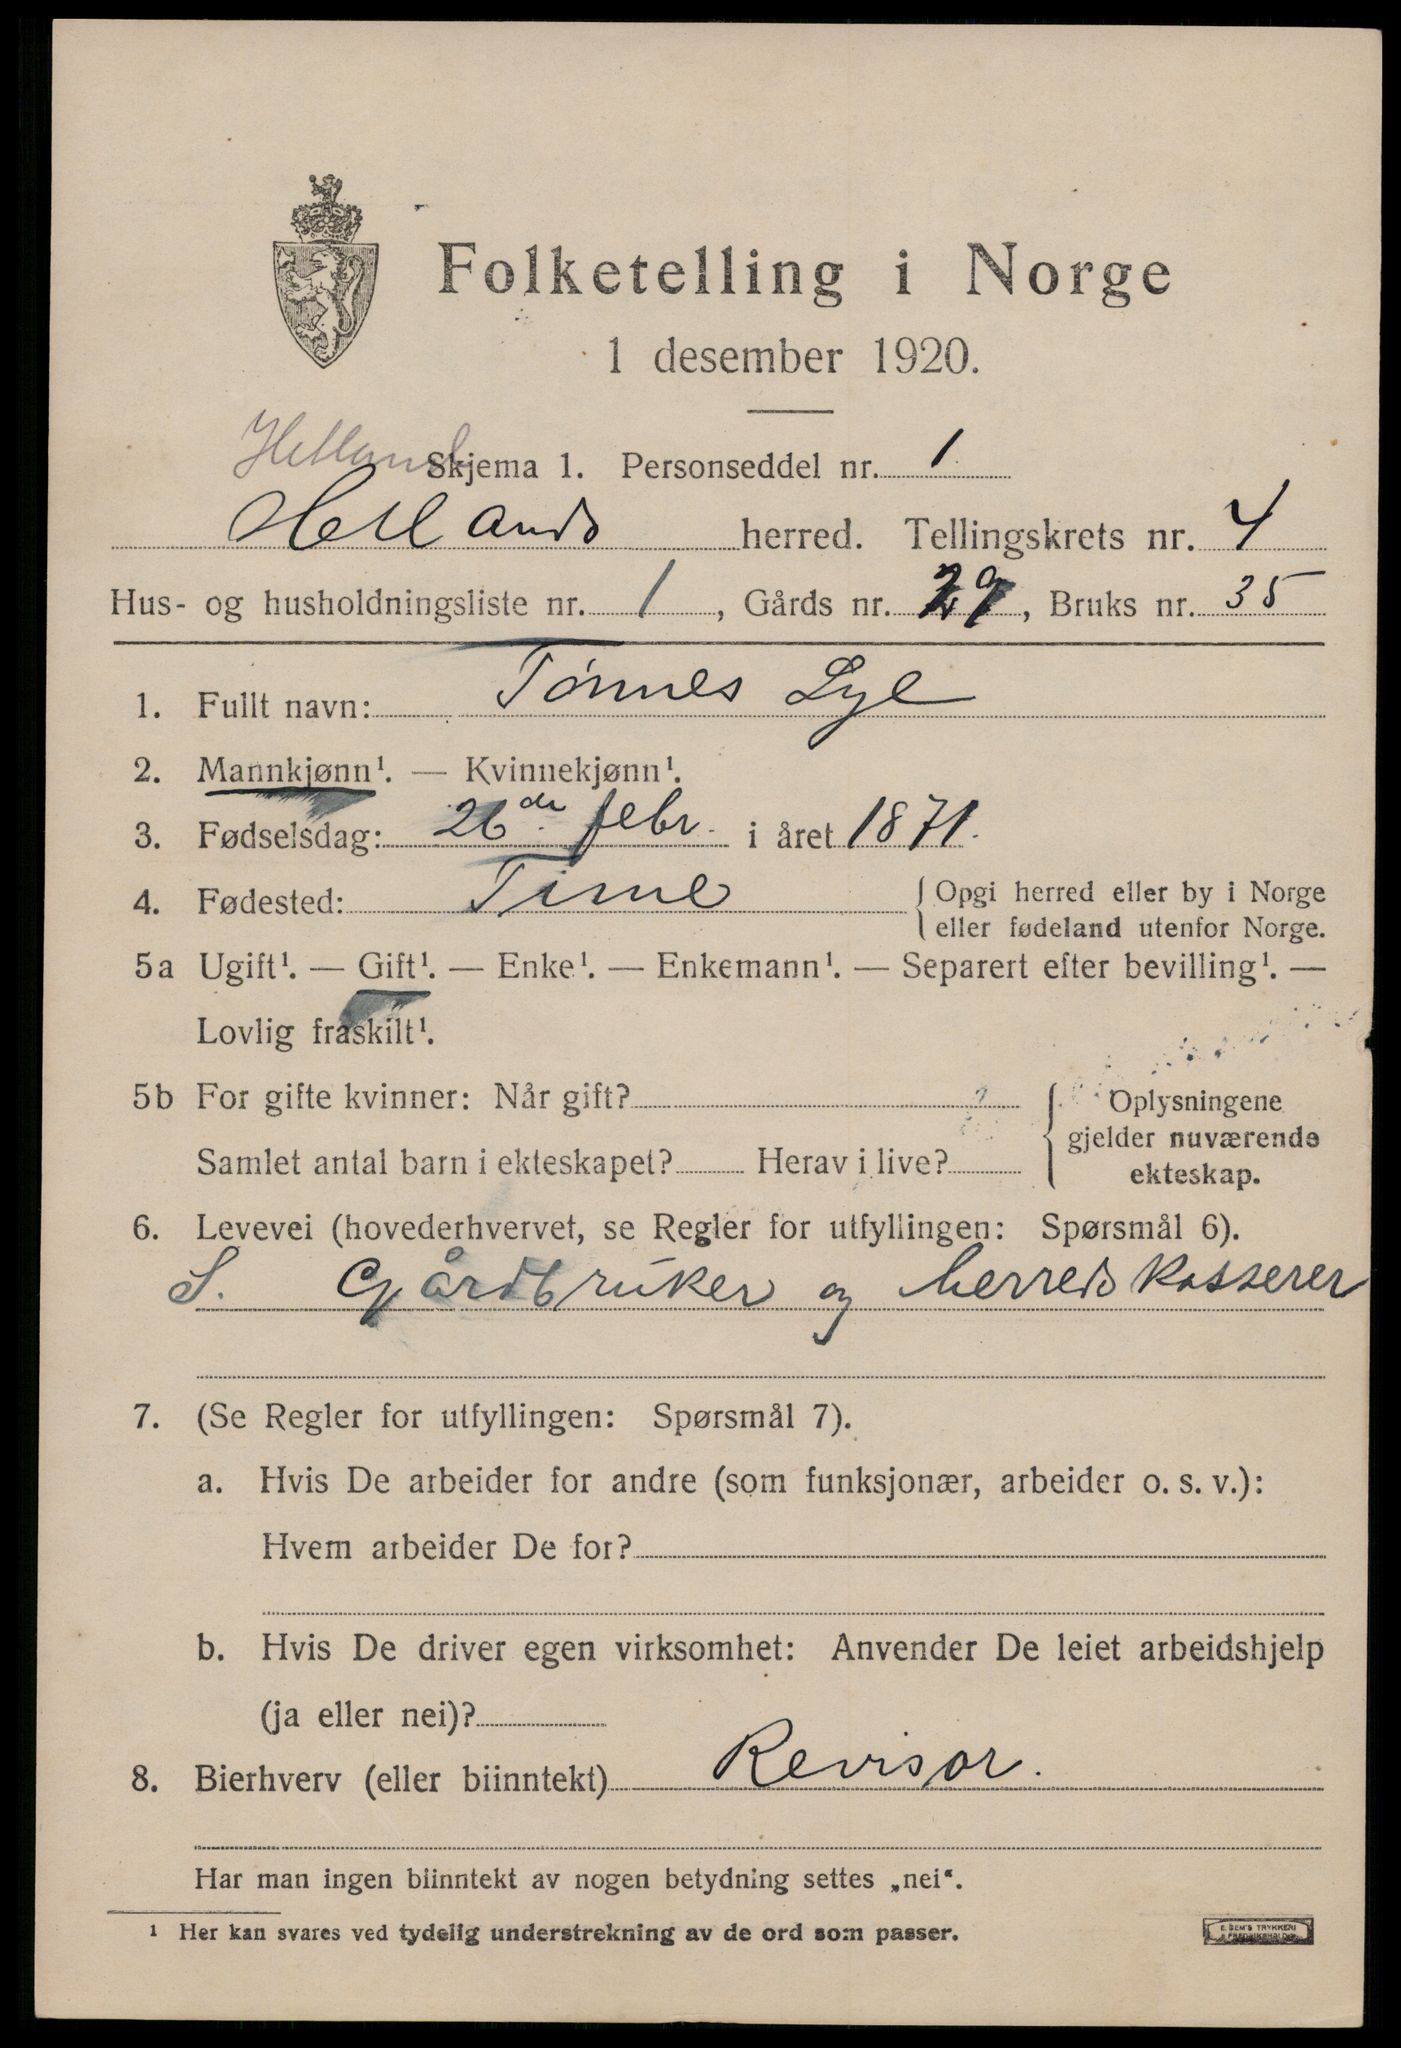 Folketelling i Norge
1 desember 1920.
Hetland
Skjema 1. Personseddel nr. 1
Hetlands herred. Tellingskrets nr. 4
Hus- og husholdningsliste nr. 1, Gårds nr. 29, Bruks nr. 35
1. Fullt navn: Tönnes Lye
2. Mannkjønn¹. — Kvinnekjønn¹.
3. Fødselsdag: 26de febr. i året 1871.
4. Fødested: Time { Opgi herred eller by i Norge
eller fødeland utenfor Norge.
5a Ugift¹. — Gift¹. — Enke¹. — Enkemann¹. — Separert efter bevilling¹. —
Lovlig fraskilt¹.
5b For gifte kvinner: Når gift? { Oplysningene
gjelder nuværende
Samlet antal barn i ekteskapet? Herav i live? ekteskap.
6. Levevei (hovederhvervet, se Regler for utfyllingen: Spørsmål 6).
S. Gårdbruker og herredskasserer
7. (Se Regler for utfyllingen: Spørsmål 7).
a. Hvis De arbeider for andre (som funksjonær, arbeider o. s. v.):
Hvem arbeider De for?
b. Hvis De driver egen virksomhet: Anvender De leiet arbeidshjelp
(ja eller nei)?
8. Bierhverv (eller biinntekt) Revisor.
Har man ingen biinntekt av nogen betydning settes „nei“.
¹ Her kan svares ved tydelig understrekning av de ord som passer.
E. SEM'S TRYKKERI
FREDRIKSHALD